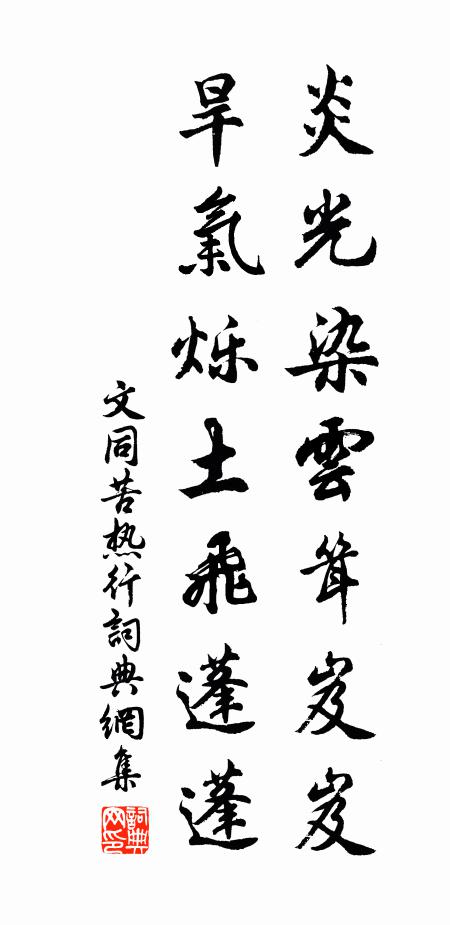 炎光染雲耸岌岌
旱氣烁土飛蓬蓬
文同苦热行詞典網集
詞典网印